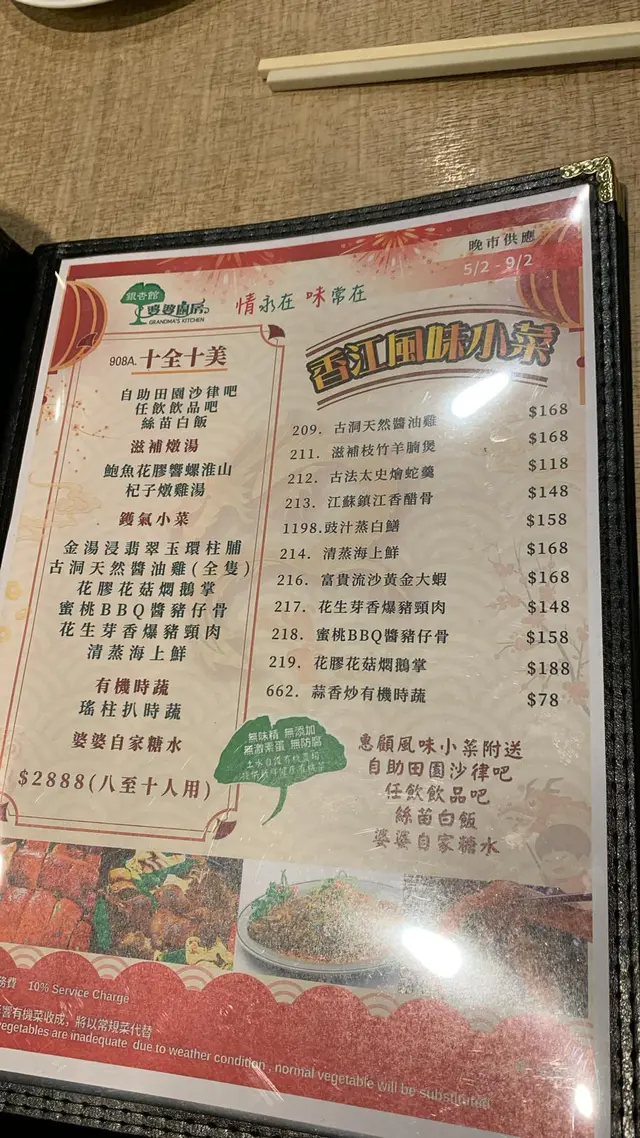 晚市供應
5/2 - 9/2
銀杏館
婆婆廚房
GRANDMA'S KITCHEN
情永在 味常在
908A. 十全十美
自助田園沙律吧
任飲飲品吧
絲苗白飯
滋補燉湯
鮑魚花膠響螺淮山
杞子燉雞湯
鑊氣小菜
金湯浸翡翠玉環柱脯
古洞天然醬油雞(全隻)
花膠花菇燜鵝掌
蜜桃BBQ醬豬仔骨
花生芽香爆豬頸肉
清蒸海上鮮
有機時蔬
瑤柱扒時蔬
婆婆自家糖水
$2888(八至十人用)
香江風味小菜
209. 古洞天然醬油雞 $168
211. 滋補枝竹羊腩煲 $168
212. 古法太史燴蛇羹 $118
213. 江蘇鎮江香醋骨 $148
1198. 豉汁蒸白鱔 $158
214. 清蒸海上鮮 $168
216. 富貴流沙黃金大蝦 $168
217. 花生芽香爆豬頸肉 $148
218. 蜜桃BBQ醬豬仔骨 $158
219. 花膠花菇燜鵝掌 $188
662. 蒜香炒有機時蔬 $78
無味精 無添加
無激素蛋 無防腐
惠顧風味小菜附送
自助田園沙律吧
任飲飲品吧
絲苗白飯
婆婆自家糖水
務費 10% Service Charge
響有機菜收成，將以常規菜代替
vegetables are inadequate due to weather condition, normal vegetable will be substituted